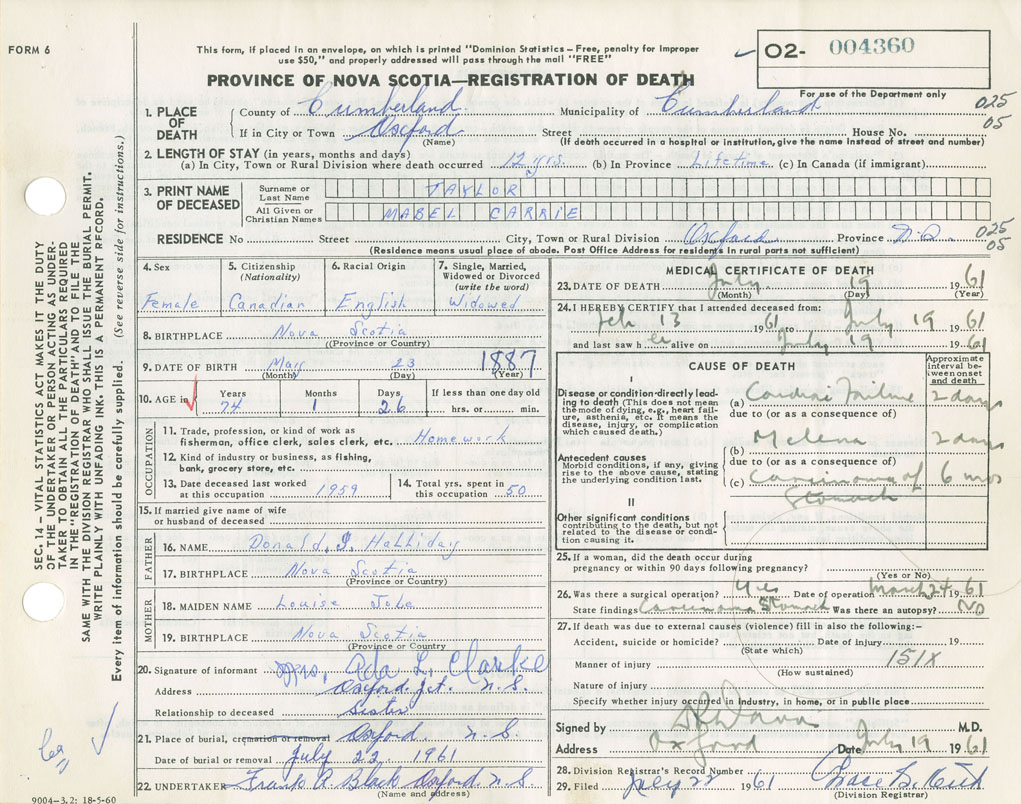 FORM 6
This form, if placed in an envelope, on which is printed "Dominion Statistics – Free, penalty for improper
use $50," and properly addressed will pass through the mail "FREE"
O2- 004360
PROVINCE OF NOVA SCOTIA—REGISTRATION OF DEATH
For use of the Department only
1. PLACE OF DEATH
County of Cumberland Municipality of Cumberland 025
If in City or Town Oxford Street House No. 05
(Name) (If death occurred in a hospital or institution, give the name instead of street and number)
2. LENGTH OF STAY (in years, months and days)
(a) In City, Town or Rural Division where death occurred 12 yrs. (b) In Province Lifetime (c) In Canada (if immigrant)
3. PRINT NAME OF DECEASED
Surname or Last Name TAYLOR
All Given or Christian Names MABEL CARRIE
RESIDENCE No Street City, Town or Rural Division Oxford Province N.S. 025
05
(Residence means usual place of abode. Post Office Address for residents in rural parts not sufficient)
4. Sex
Female
5. Citizenship
(Nationality)
Canadian
6. Racial Origin
English
7. Single, Married,
Widowed or Divorced
(write the word)
Widowed
8. BIRTHPLACE Nova Scotia
(Province or Country)
9. DATE OF BIRTH 23 1887
(Month) (Day) (Year)
10. AGE in
Years 74
Months 1
Days 26
If less than one day old
hrs. or min.
OCCUPATION
11. Trade, profession, or kind of work as
fisherman, office clerk, sales clerk, etc. Homework
12. Kind of industry or business, as fishing,
bank, grocery store, etc.
13. Date deceased last worked
at this occupation 1959
14. Total yrs. spent in
this occupation 50
15. If married give name of wife
or husband of deceased
FATHER
16. NAME Donald Halliday
17. BIRTHPLACE Nova Scotia
(Province or Country)
MOTHER
18. MAIDEN NAME Louise
19. BIRTHPLACE Nova Scotia
(Province or Country)
20. Signature of informant Mrs. Ada L. Clarke
Address Oxford Jct. N.S.
Relationship to deceased Sister
21. Place of burial, cremation or removal Oxford N.S.
Date of burial or removal July 22, 1961
22. UNDERTAKER Frank R. Black Oxford N.S.
(Name and address)
9004-3.2: 18-5-60
MEDICAL CERTIFICATE OF DEATH
23. DATE OF DEATH July 19 1961
(Month) (Day) (Year)
24. I HEREBY CERTIFY that I attended deceased from:
Feb 13 1961 to July 19 1961
and last saw her alive on July 19 1961
CAUSE OF DEATH
Approximate
interval be-
tween onset
and death
I
Disease or condition directly lead-
ing to death (This does not mean
the mode of dying, e.g., heart fail-
ure, asthenia, etc. It means the
disease, injury, or complication
which caused death.)
(a) Cardiac Failure 2 days
due to (or as a consequence of)
Antecedent causes
Morbid conditions, if any, giving
rise to the above cause, stating
the underlying condition last.
(b) Melena 2 days
due to (or as a consequence of)
(c) Carcinoma of Stomach 6 mos
II
Other significant conditions
contributing to the death, but not
related to the disease or condi-
tion causing it.
25. If a woman, did the death occur during
pregnancy or within 90 days following pregnancy?
(Yes or No)
26. Was there a surgical operation? Yes Date of operation March 24 1961
State findings Carcinoma Stomach Was there an autopsy? No
27. If death was due to external causes (violence) fill in also the following:-
Accident, suicide or homicide? Date of injury 19
(State which)
151X
Manner of injury
(How sustained)
Nature of injury
Specify whether injury occurred in industry, in home, or in public place
Signed by M.D.
Address Oxford Date July 19 1961
28. Division Registrar's Record Number
29. Filed July 22 1961
(Division Registrar)
SEC. 14 – VITAL STATISTICS ACT MAKES IT THE DUTY
OF THE UNDERTAKER OR PERSON ACTING AS UNDER-
TAKER TO OBTAIN ALL THE PARTICULARS REQUIRED
IN THE "REGISTRATION OF DEATH" AND TO FILE THE
SAME WITH THE DIVISION REGISTRAR WHO SHALL ISSUE THE BURIAL PERMIT.
WRITE PLAINLY WITH UNFADING INK. THIS IS A PERMANENT RECORD.
Every item of information should be carefully supplied. (See reverse side for instructions.)